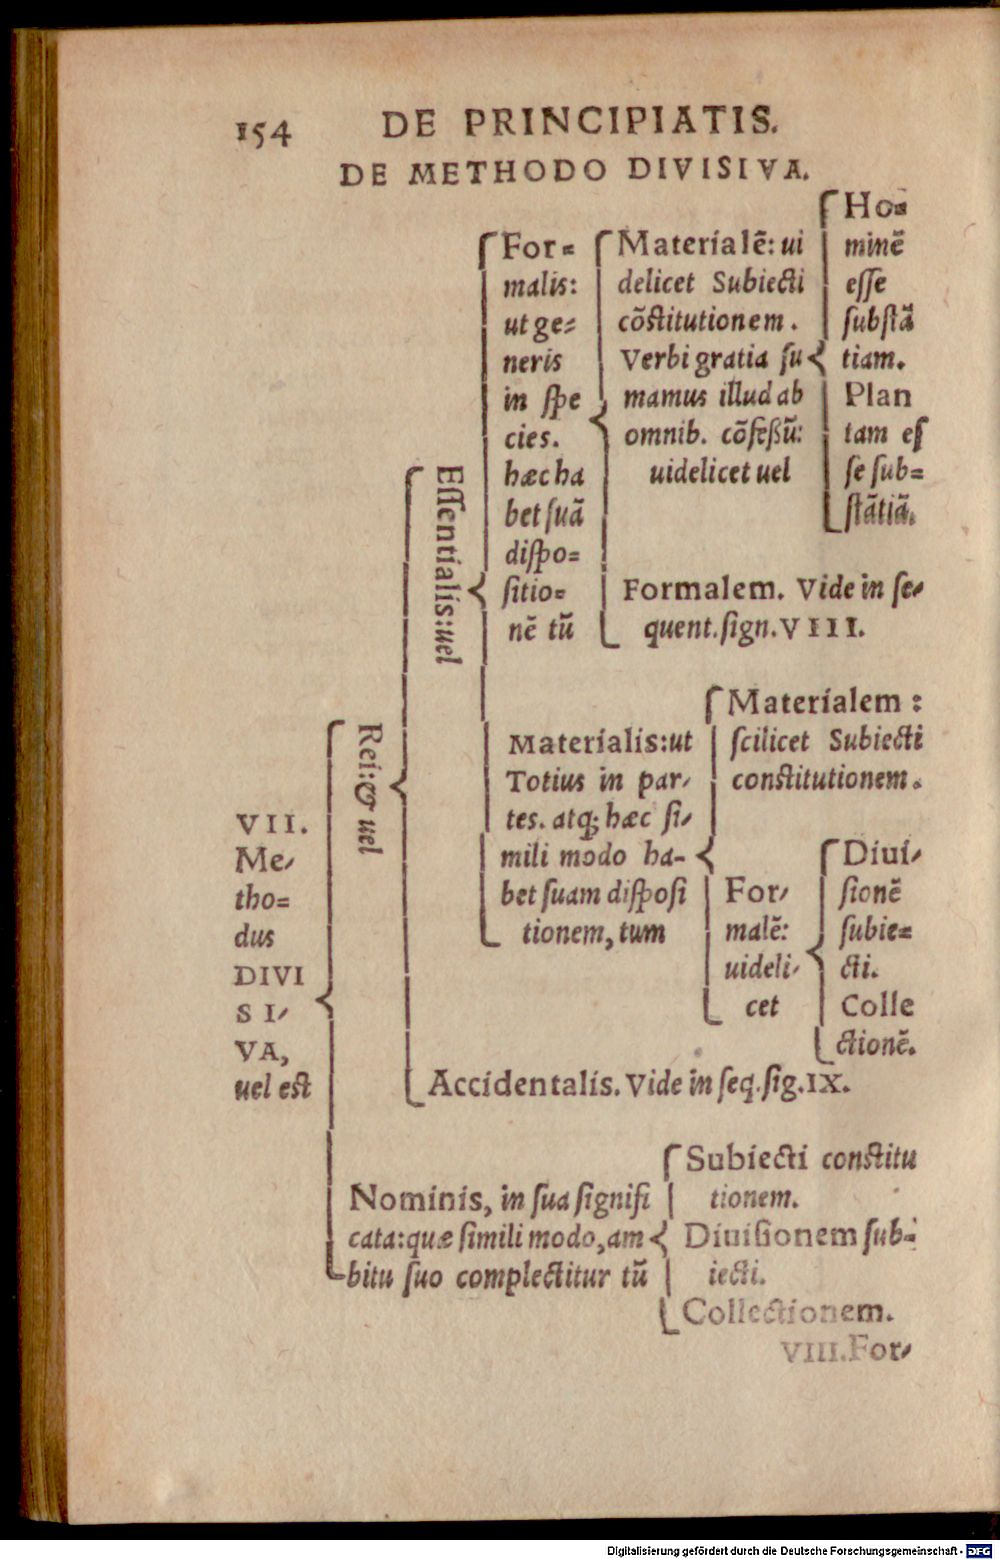 154 DE PRINCIPIATIS.
DE METHODO DIVISIVA.
VII.
Me-
tho=
dus
DIVI
SI-
VA,
uel est
Rei:& uel
Eſſentialis:uel
For=
malis:
ut ge=
neris
in ſpe
cies.
hæc ha
bet ſuã
diſpo=
ſitio=
nẽ tũ
Materialẽ: ui
delicet Subiecti
cõstitutionem.
Verbi gratia ſu
mamus illud ab
omnib. cõfeßũ:
uidelicet uel
Ho=
minẽ
eſſe
ſubſtã
tiam.
Plan
tam eſ
ſe ſub=
ſtãtiã.
Formalem. Vide in ſe-
quent. ſign. VIII.
Materialis:ut
Totius in par-
tes. atq; hæc ſi-
mili modo ha-
bet ſuam diſpoſi
tionem, tum
Materialem:
ſcilicet Subiecti
constitutionem.
For-
malẽ:
uideli-
cet
Diui-
ſionẽ
ſubie=
cti.
Colle
ctionẽ.
Accidentalis. Vide in ſeq. ſig. IX.
Nominis, in ſua ſignifi
cata: quæ ſimili modo, am
bitu ſuo complectitur tũ
Subiecti constitu
tionem.
Diuiſionem ſub-
iecti.
Collectionem.
VIII. For-
Digitalisierung gefördert durch die Deutsche Forschungsgemeinschaft - DFG